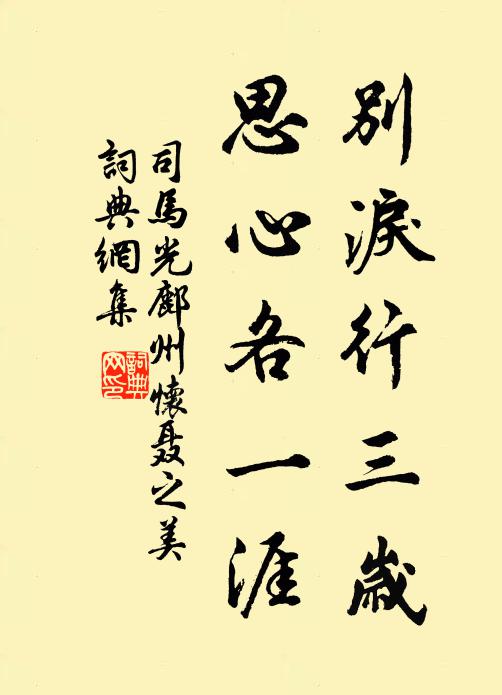 別淚行三歲
思心各一涯
司馬光鄜州懷聶之美
詞典網集
詞典
网印